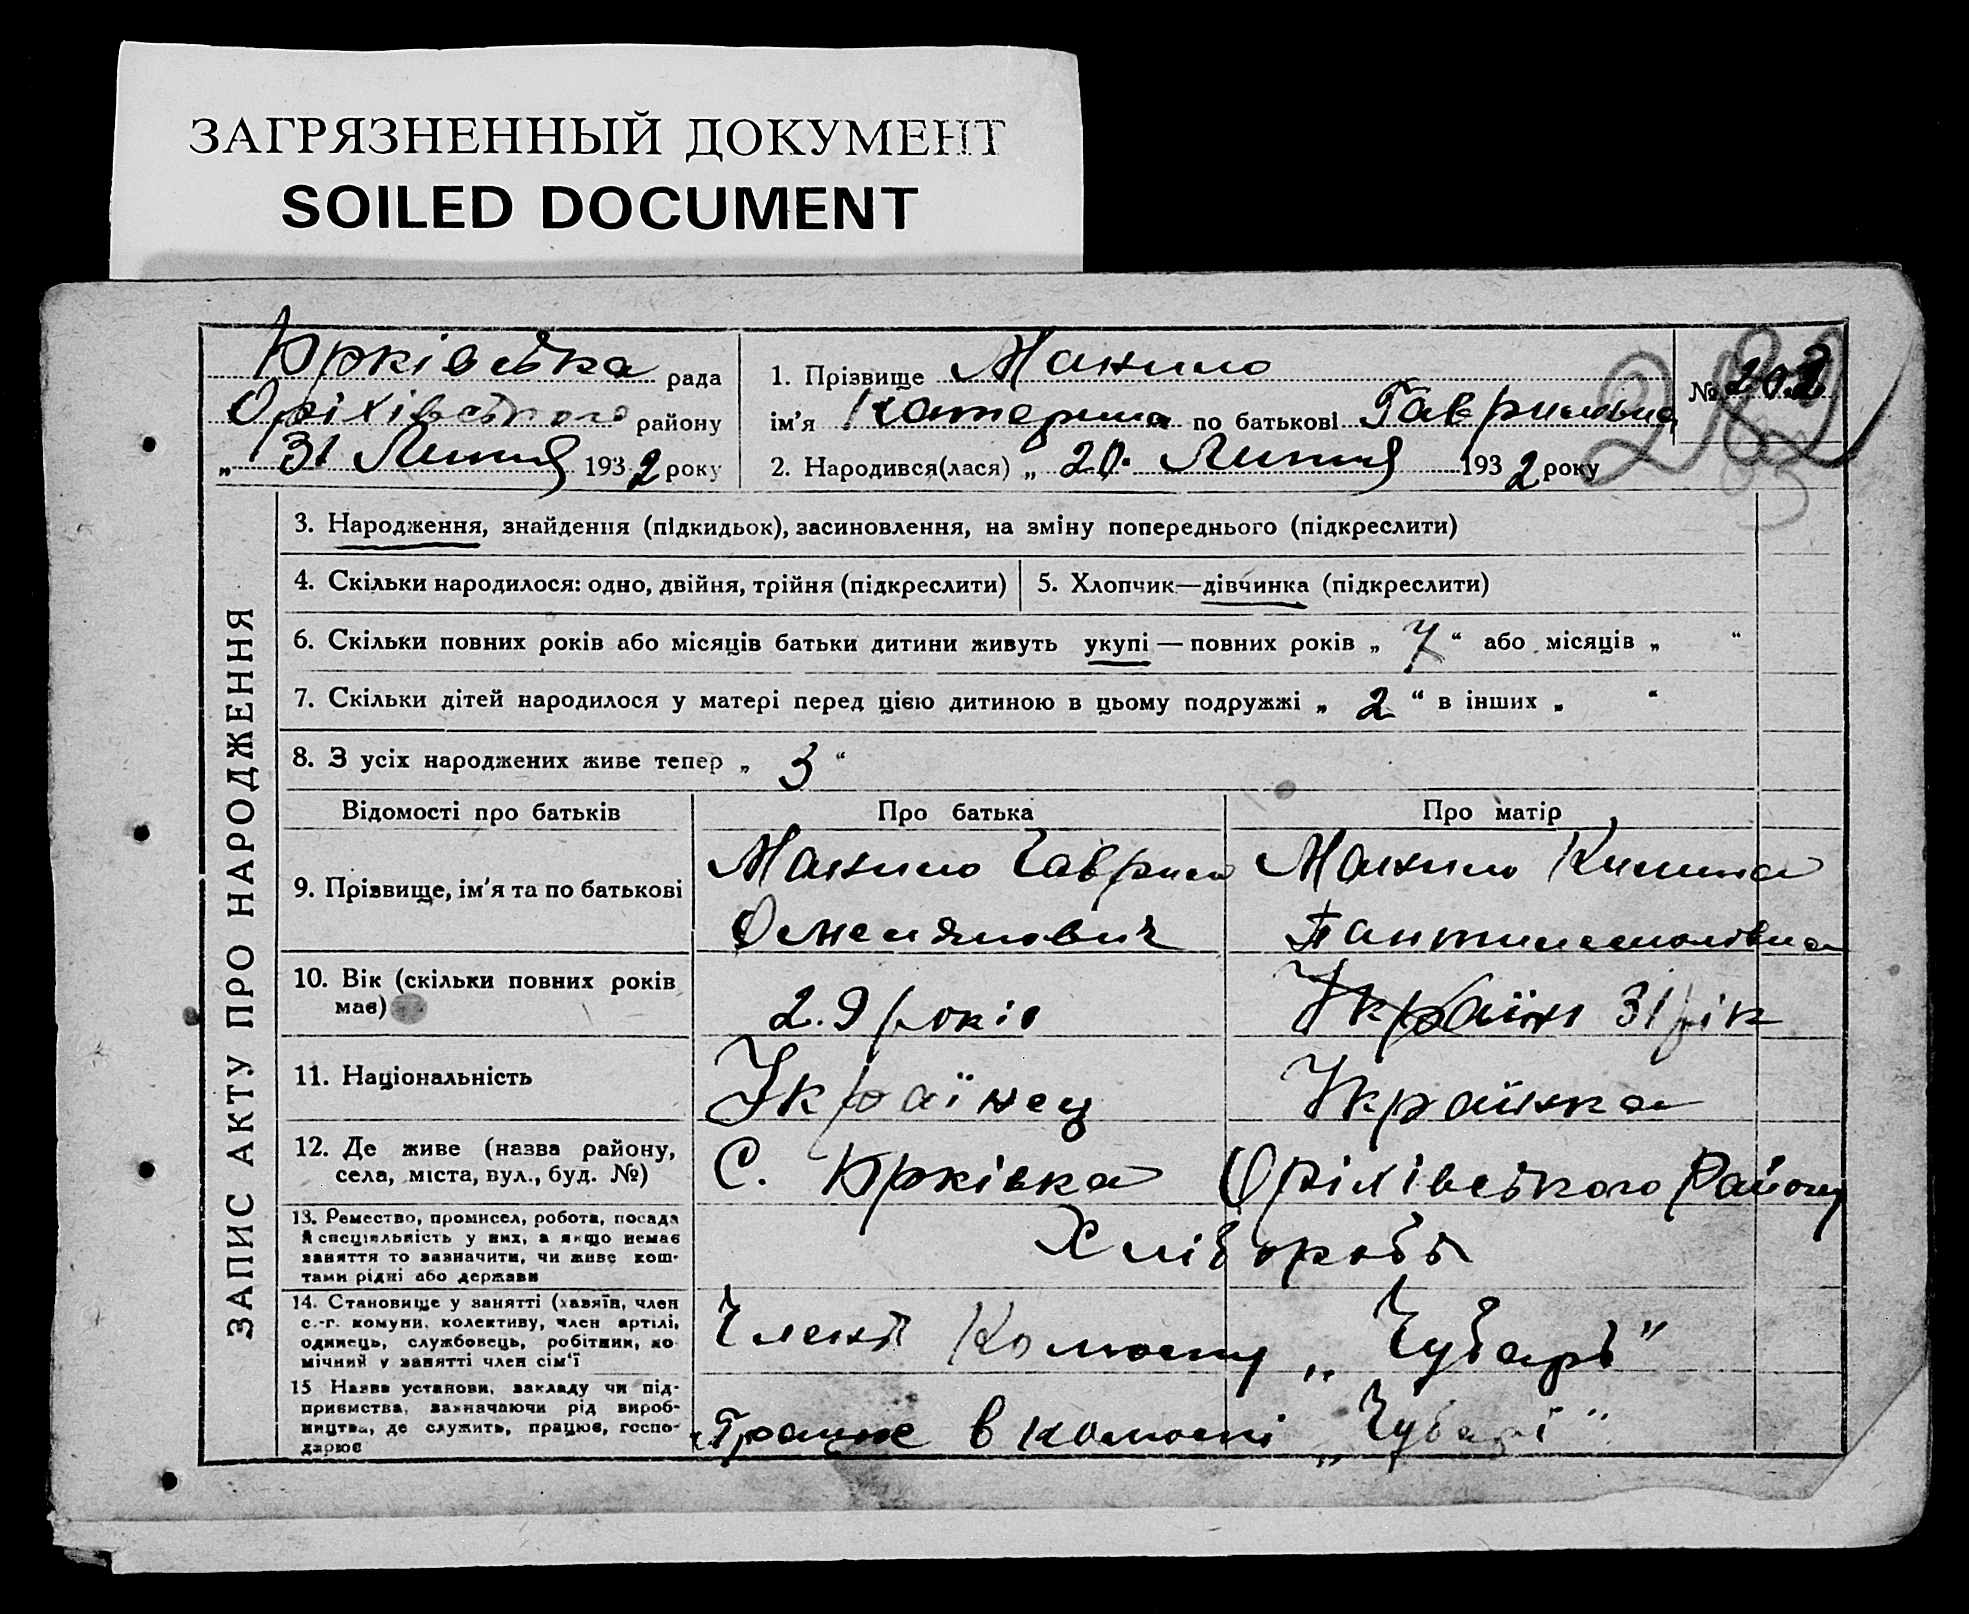 ЗАГРЯЗНЕННЫЙ ДОКУМЕНТ
SOILED DOCUMENT
Юрківська рада
Оріхівського району
„ 31 Липня 1932 року
1. Прізвище Манило
ім'я Катерина по батькові Гаврилівна
2. Народився(лася) „ 20. Липня 1932 року
№
ЗАПИС АКТУ ПРО НАРОДЖЕННЯ
3. Народження, знайдення (підкидьок), засиновлення, на зміну попереднього (підкреслити)
4. Скільки народилося: одно, двійня, трійня (підкреслити)
5. Хлопчик—дівчинка (підкреслити)
6. Скільки повних років або місяців батьки дитини живуть укупі — повних років „ 7 “ або місяців „ “
7. Скільки дітей народилося у матері перед цією дитиною в цьому подружжі „ 2 “ в інших „ “
8. З усіх народжених живе тепер „ 3 “
Відомості про батьків
Про батька
Про матір
9. Прізвище, ім'я та по батькові
Манило Гаврило
Омелянович
Манило Килина
Пантилемонівна
10. Вік (скільки повних років
має)
29 років
Україн 31 рік
11. Національність
Українец
Українка
12. Де живе (назва району,
села, міста, вул., буд. №)
С. Юрківка Оріхівського Району
13. Ремество, промисел, робота, посада
й спеціяльність у них, а якщо немає
заняття то зазначити, чи живе кош-
тами рідні або держави
Хлібороби
14. Становище у занятті (хазяїн, член
с.-г. комуни, колективу, член артілі,
одинець, службовець, робітник, по-
мічний у занятті член сім'ї
Члени Комуни „ Чубарь "
15 Назва установи, закладу чи під-
приємства, зазначаючи рід вироб-
ництва, де служить, працює, госпо-
дарює
Працює в комуні „ Чубарі "